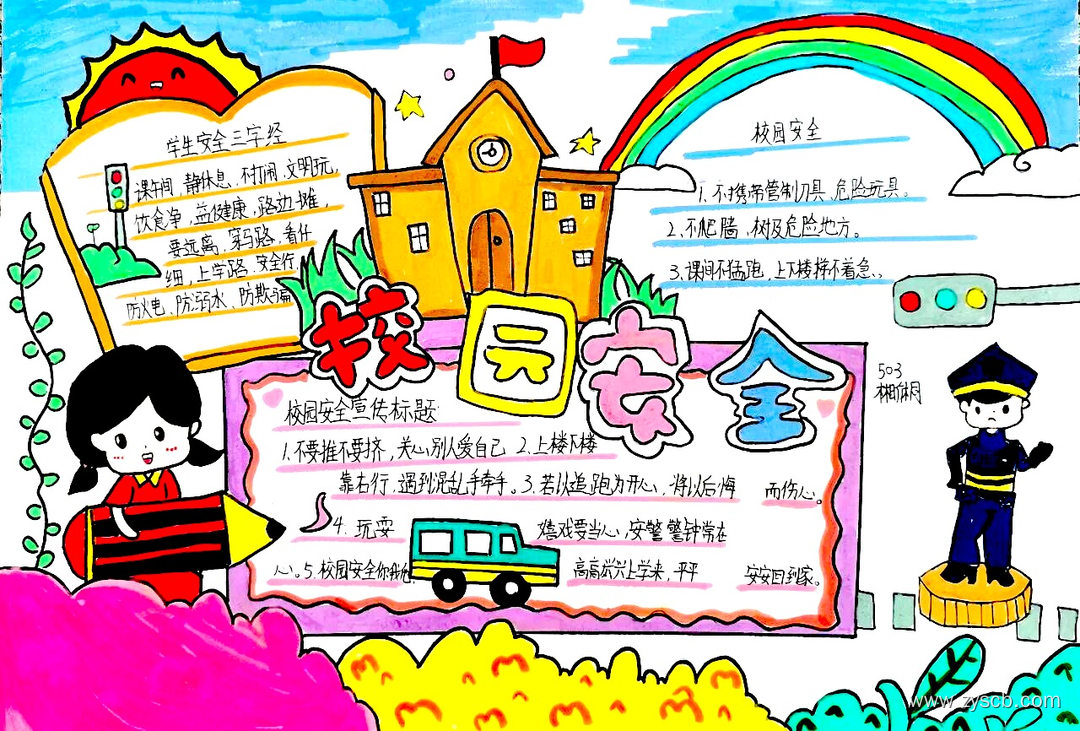 学生安全三字经
课午间,静休息,不打闹,文明玩,
饮食净,益健康,路边摊,
要远离,穿马路,看仔
细,上学路,安全行,
防火电、防溺水、防欺骗
校园安全
1.不携带管制刀具,危险玩具。
2.不爬墙,树及危险地方。
3.课间不猛跑,上下楼梯不着急、
校园安全
503
校园安全宣传标题
1.不要推不要挤,关心别人爱自己 2.上楼下楼
靠右行,遇到混乱手牵手。3.若以追跑为开心,将以后悔 而伤心。
4.玩耍 嬉戏要当心,安警警钟常在
心。5.校园安全你我他 高高兴兴上学来,平平 安安回到家。
www.zyscb.com